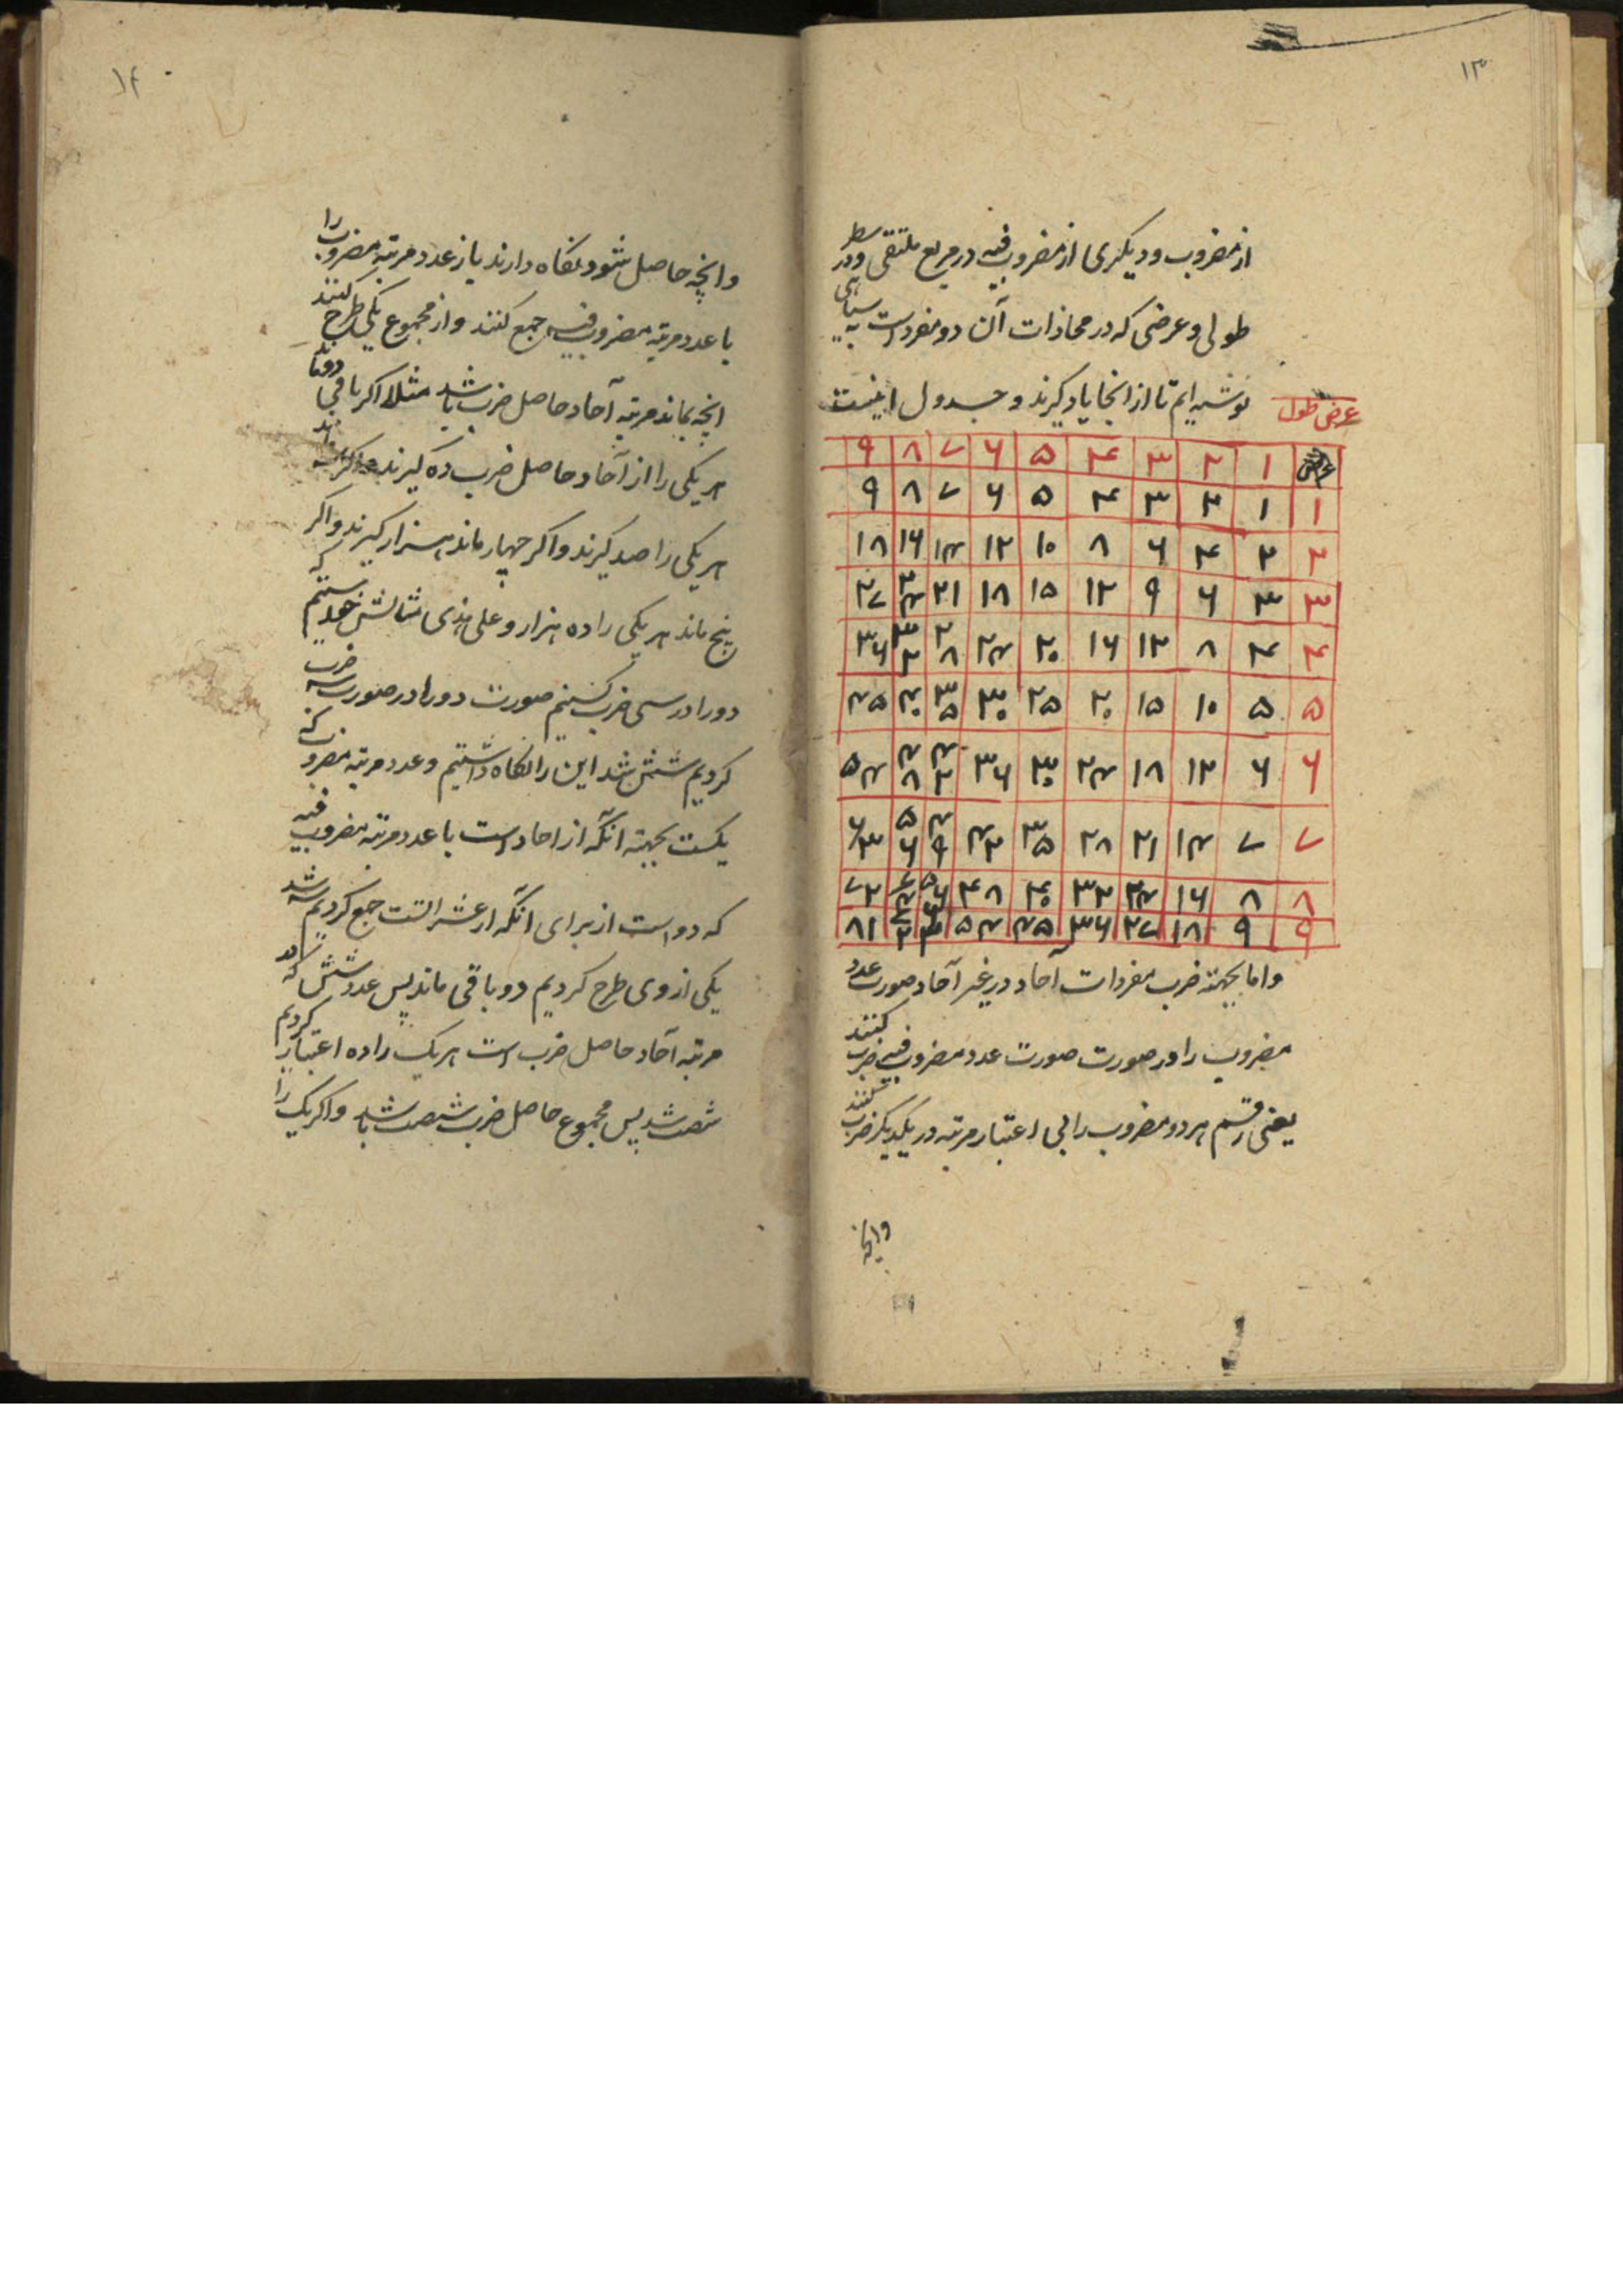 ۱۳
از مضروب و دیکری از مضروب فیه در مربع ملتقی دو سطر
طولی و عرضی که در محاذات آن دو مفرد است به سیاهی
نوشته ایم تا از انجا یاد کیرند و جدول اینست
عرض طول
عرض ۱ ۲ ۳ ۴ ۵ ۶ ۷ ۸ ۹
۱ ۱ ۲ ۳ ۴ ۵ ۶ ۷ ۸ ۹
۲ ۲ ۴ ۶ ۸ ۱۰ ۱۲ ۱۴ ۱۶ ۱۸
۳ ۳ ۶ ۹ ۱۲ ۱۵ ۱۸ ۲۱ ۲۴ ۲۷
۴ ۴ ۸ ۱۲ ۱۶ ۲۰ ۲۴ ۲۸ ۳۲ ۳۶
۵ ۵ ۱۰ ۱۵ ۲۰ ۲۵ ۳۰ ۳۵ ۴۰ ۴۵
۶ ۶ ۱۲ ۱۸ ۲۴ ۳۰ ۳۶ ۴۲ ۴۸ ۵۴
۷ ۷ ۱۴ ۲۱ ۲۸ ۳۵ ۴۲ ۴۹ ۵۶ ۶۳
۸ ۸ ۱۶ ۲۴ ۳۲ ۴۰ ۴۸ ۵۶ ۶۴ ۷۲
۹ ۹ ۱۸ ۲۷ ۳۶ ۴۵ ۵۴ ۶۳ ۷۲ ۸۱
و اما بجهته ضرب مفردات آحاد در غیر آحاد صورت عدد
مضروب را در صورت صورت عدد مضروب فیه ضرب کنند
یعنی رقم هر دو مضروب را بی اعتبار مرتبه در یکدیکر ضرب کنند
وانچه
۱۴
وانچه حاصل شود نکاه دارند باز عدد مرتبه مضروب را
با عدد مرتبه مضروب فیه جمع کنند و از مجموع یکی طرح کنند
انچه بماند مرتبه آحاد حاصل ضرب باشد مثلا اکر باقی دو ماند
هر یکی را از آحاد حاصل ضرب ده کیرند و اکر سه ماند
هر یکی را صد کیرند و اکر چهار ماند هزار کیرند و اکر
پنج ماند هر یکی را ده هزار و علی هذی مثالش خواستیم که
دو را در سی ضرب کنیم صورت دو را در صورت سه ضرب
کردیم شش شد این را نکاه داشتیم و عدد مرتبه مضروب که
یکست بجهته انکه از احاد است با عدد مرتبه مضروب فیه
که دو است از برای انکه از عشراتست جمع کردیم سه شد
یکی از وی طرح کردیم دو باقی ماند پس عدد شش که
مرتبه آحاد حاصل ضرب است هر یک را ده اعتبار کردیم
شصت شد پس مجموع حاصل ضرب شصت باشد و اکر یک را